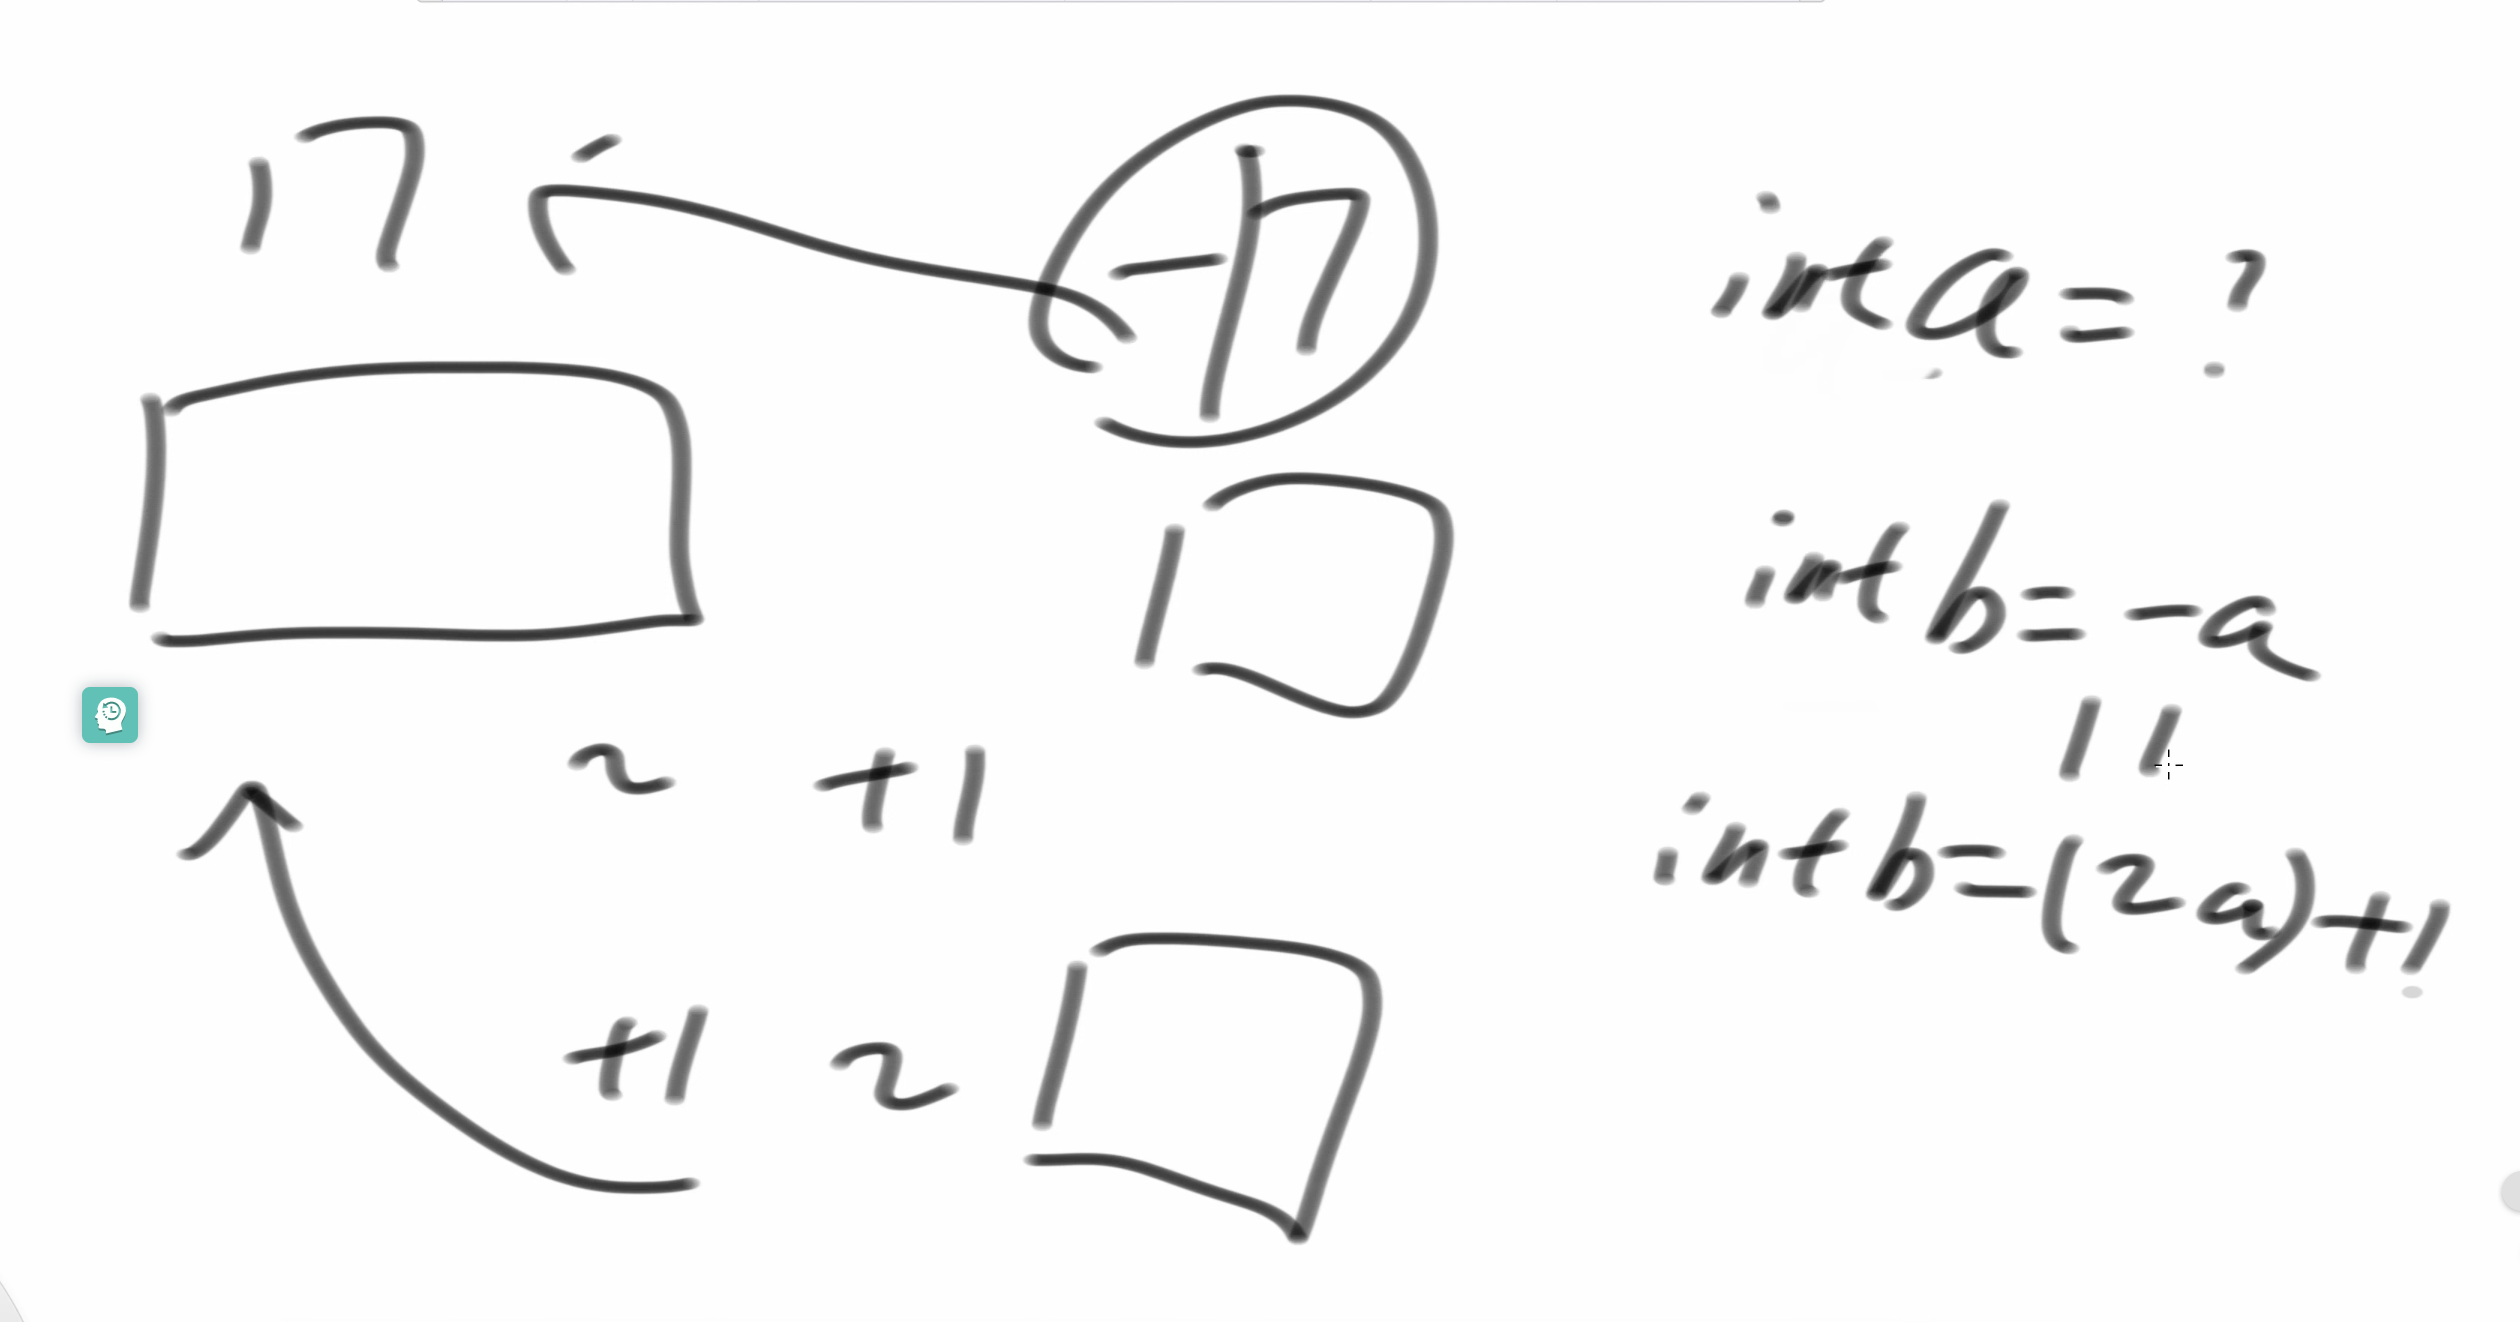 17
-17
int a = ?
int b = -a
||
~ +1
int b = (~a)+1
+1 ~